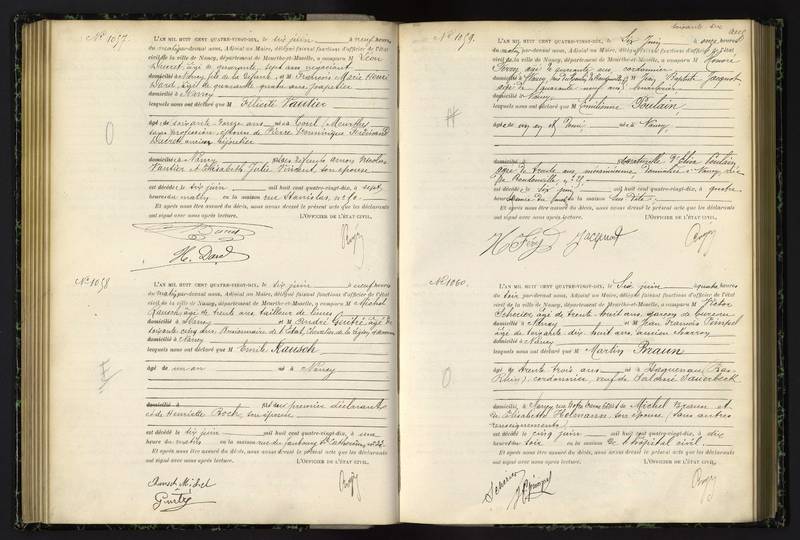 No 1057.
L'AN MIL HUIT CENT QUATRE-VINGT-DIX, le six juin à neuf heures
du matin par-devant nous, Adjoint au Maire, délégué faisant fonctions d'officier de l'état
civil de la ville de Nancy, département de Meurthe-et-Moselle, a comparu M Léon
Ducret, âgé de quarante sept ans négociant
domicilié à Nancy, fils de la défunte, et M François Marie Henri
Dard, âgé de quarante quatre ans,
domicilié à Nancy
lesquels nous ont déclaré que M Félicité Vautier
âgé de soixante treize ans né à Toul (Meurthe)
sans profession, épouse de Pierre Dominique
Ducret ancien bijoutier
domicilié à Nancy des défunts Nicolas
Vautier et Elisabeth Julie Vincent, son épouse
est décédé le six juin mil huit cent quatre-vingt-dix, à sept
heures du matin en la maison rue Stanislas, no
Et après nous être assuré du décès, nous avons dressé le présent acte que les déclarants
ont signé avec nous après lecture. L'OFFICIER DE L'ÉTAT CIVIL,
Ducret
H. Dard
No 1058
L'AN MIL HUIT CENT QUATRE-VINGT-DIX, le six juin à neuf heures
du matin par-devant nous, Adjoint au Maire, délégué faisant fonctions d'officier de l'état
civil de la ville de Nancy, département de Meurthe-et-Moselle, a comparu M Michel
Rausch, âgé de trente ans tailleur de limes
domicilié à Nancy et M André Guitré âgé de
soixante cinq ans, Pensionnaire de l'Etat, Chevalier de la légion d'honneur
domicilié à Nancy
lesquels nous ont déclaré que M Emile Rausch
âgé de un an né à Nancy
domicilié à premier déclarant
et de Henriette Roch, son épouse
est décédé le six juin mil huit cent quatre-vingt-dix, à une
heure du matin en la maison rue du faubourg Ste Catherine, no
Et après nous être assuré du décès, nous avons dressé le présent acte que les déclarants
ont signé avec nous après lecture. L'OFFICIER DE L'ÉTAT CIVIL,
Rausch Michel
Guitré
soixante dix
No 1059.
L'AN MIL HUIT CENT QUATRE-VINGT-DIX, le Six Juin à onze heures
du matin par-devant nous, Adjoint au Maire, délégué faisant fonctions d'officier de l'état
civil de la ville de Nancy, département de Meurthe-et-Moselle, a comparu M Honoré
âgé de ans cordonnier
domicilié à Nancy, et M Jean Baptiste Jacquot
âgé de quarante neuf ans,
domicilié à Nancy
lesquels nous ont déclaré que M Emilienne Poulain
âgé de un an et demi né à Nancy,
domicilié à Poulain
âgée de trente ans domiciliée à Nancy
est décédé le six juin mil huit cent quatre-vingt-dix, à quatre
heures du matin en la maison sus dite
Et après nous être assuré du décès, nous avons dressé le présent acte que les déclarants
ont signé avec nous après lecture. L'OFFICIER DE L'ÉTAT CIVIL,
Jacquot
No 1060.
L'AN MIL HUIT CENT QUATRE-VINGT-DIX, le Six juin à quatre heures
du soir par-devant nous, Adjoint au Maire, délégué faisant fonctions d'officier de l'état
civil de la ville de Nancy, département de Meurthe-et-Moselle, a comparu M Victor
Scherier, âgé de trente huit ans, garçon de bureau
domicilié à Nancy et M Jean François
âgé de soixante dix huit ans, ancien charron
domicilié à Nancy
lesquels nous ont déclaré que M Martin Braun
âgé de trente trois ans né à Haguenau (Bas-
Rhin), cordonnier, veuf de Salomé Sauerbeck
domicilié à Nancy rue Notre Dame de Michel Braun et
de Elisabeth Holzmann, son épouse, (sans autres
renseignements)
est décédé le cinq juin mil huit cent quatre-vingt-dix, à dix
heures du soir en la maison de l'hôpital civil.
Et après nous être assuré du décès, nous avons dressé le présent acte que les déclarants
ont signé avec nous après lecture. L'OFFICIER DE L'ÉTAT CIVIL,
Scherier